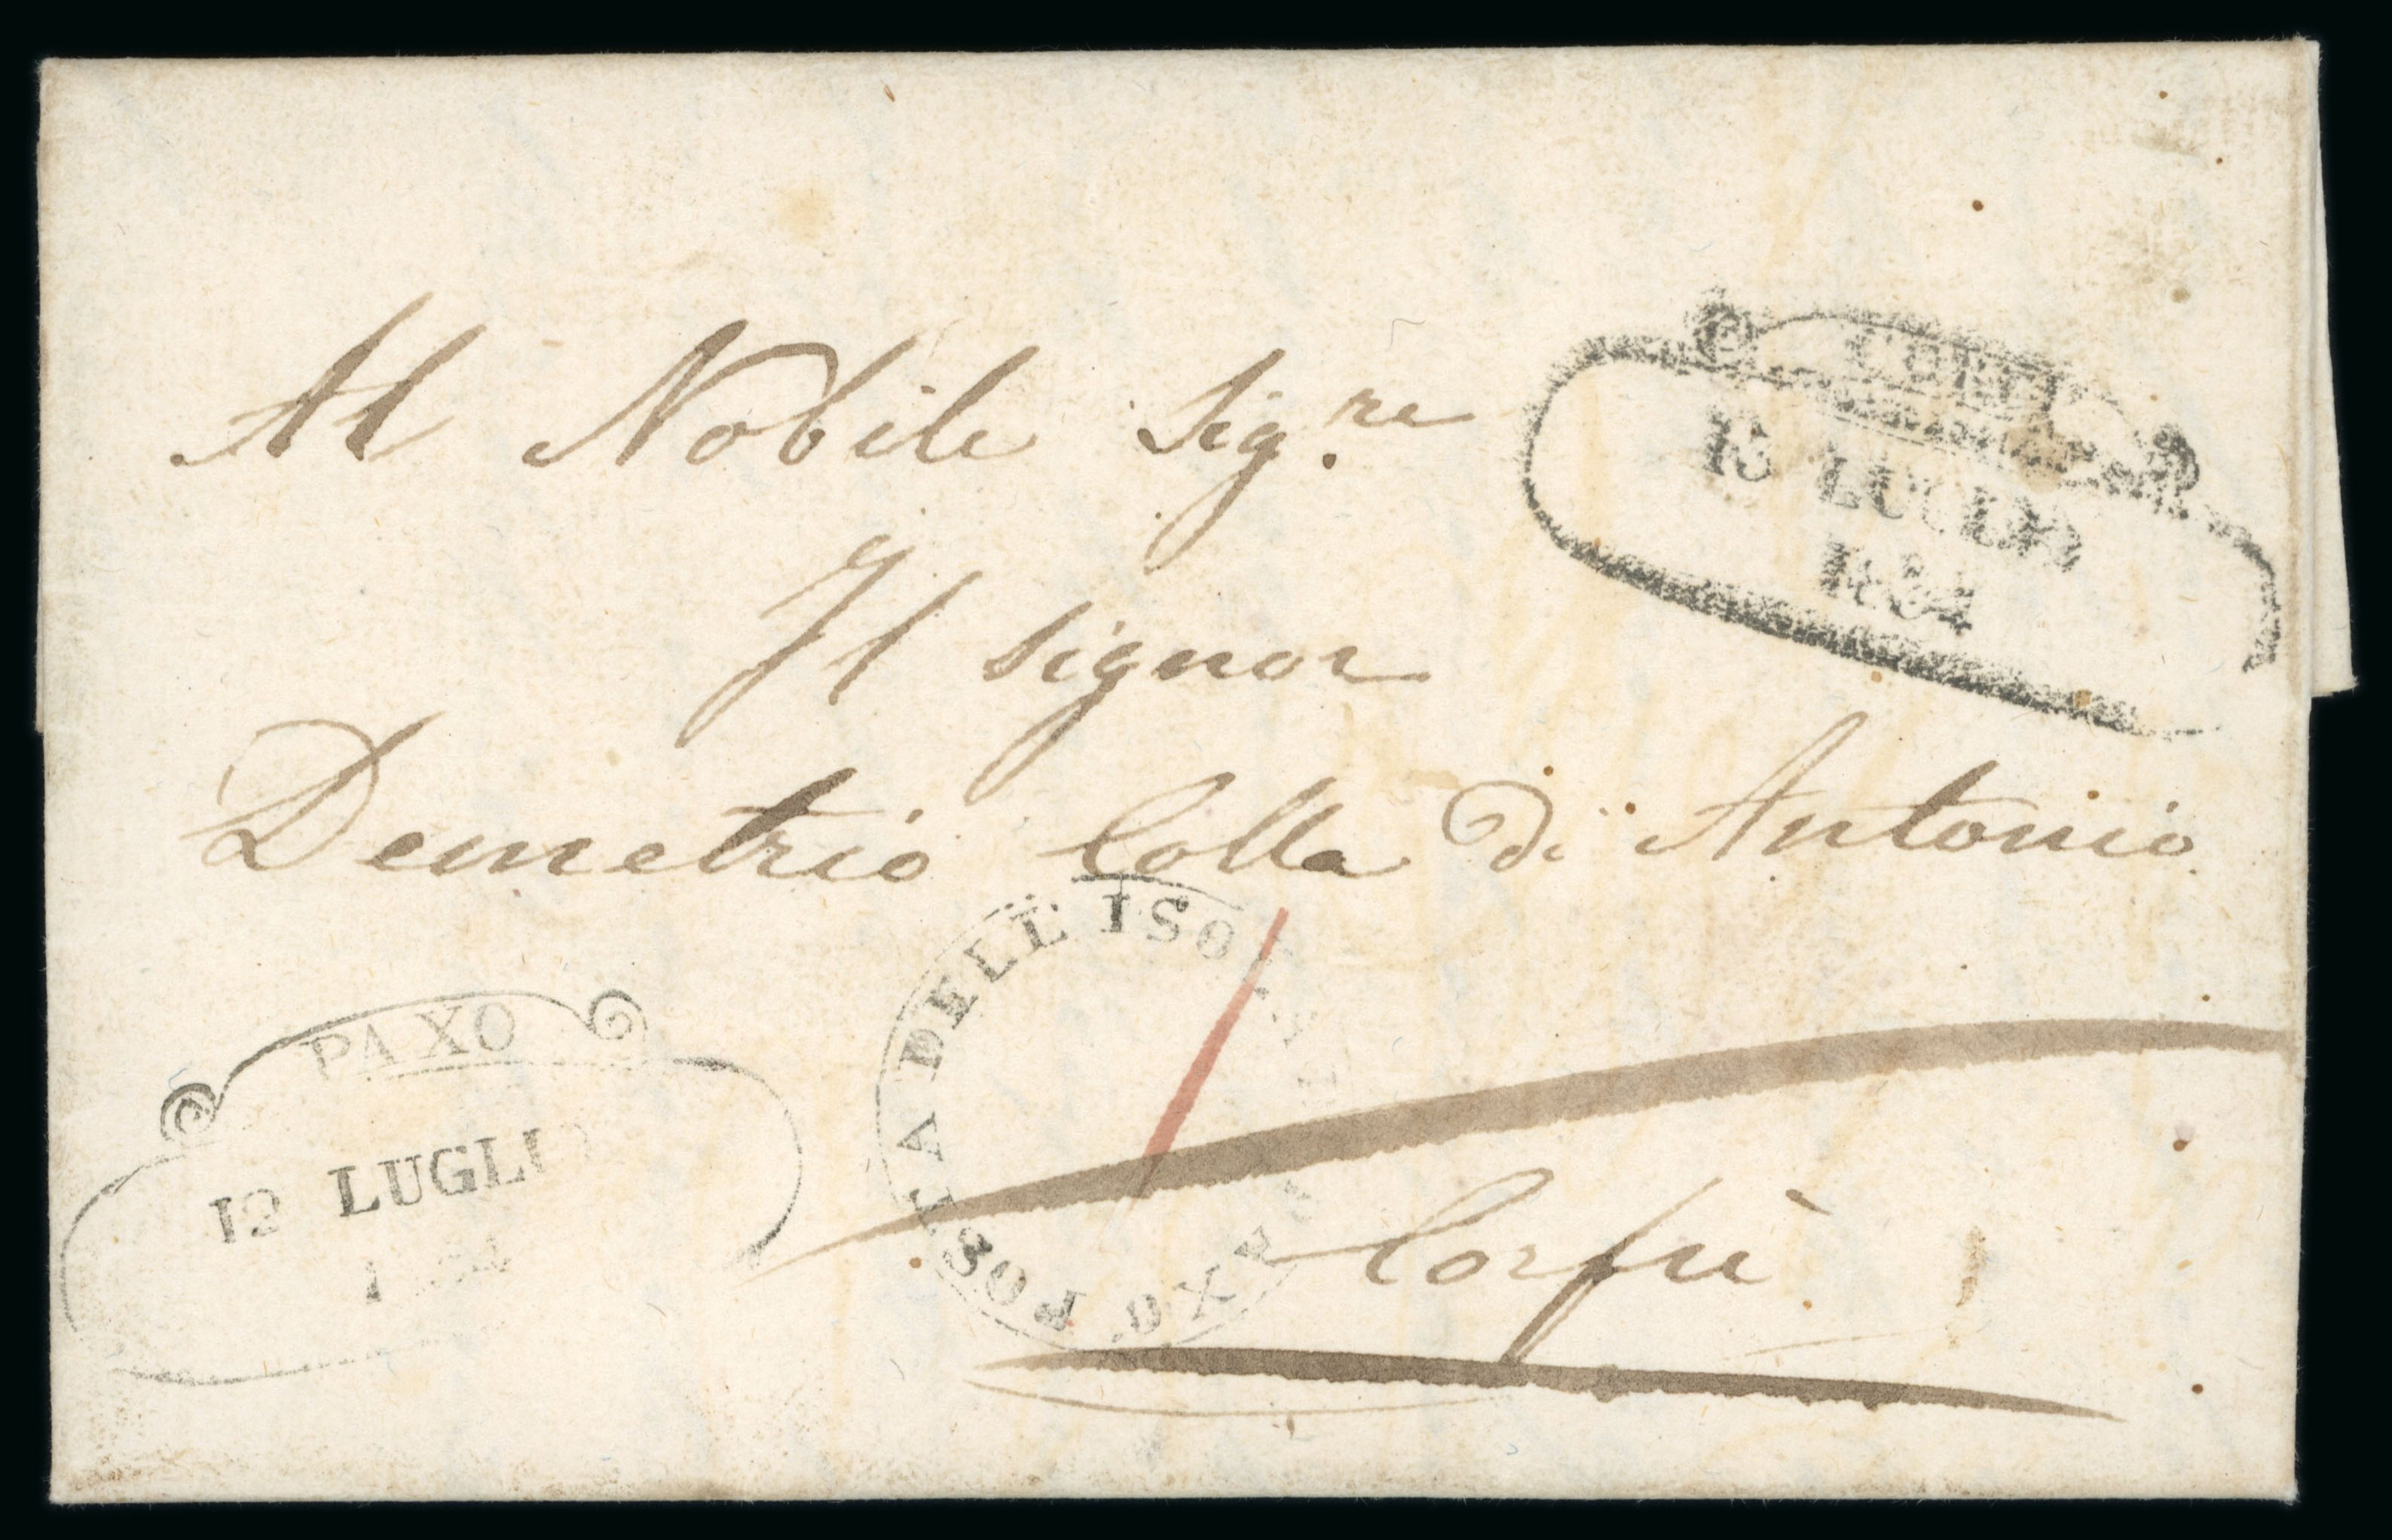 Al Nobile Sig.re
Il Signor
Demetrio Colla di Antonio
Corfù
CORFU
13 LUGLIO
1834
PAXO
12 LUGLIO
POSTA DELL' ISO DI PAXO.